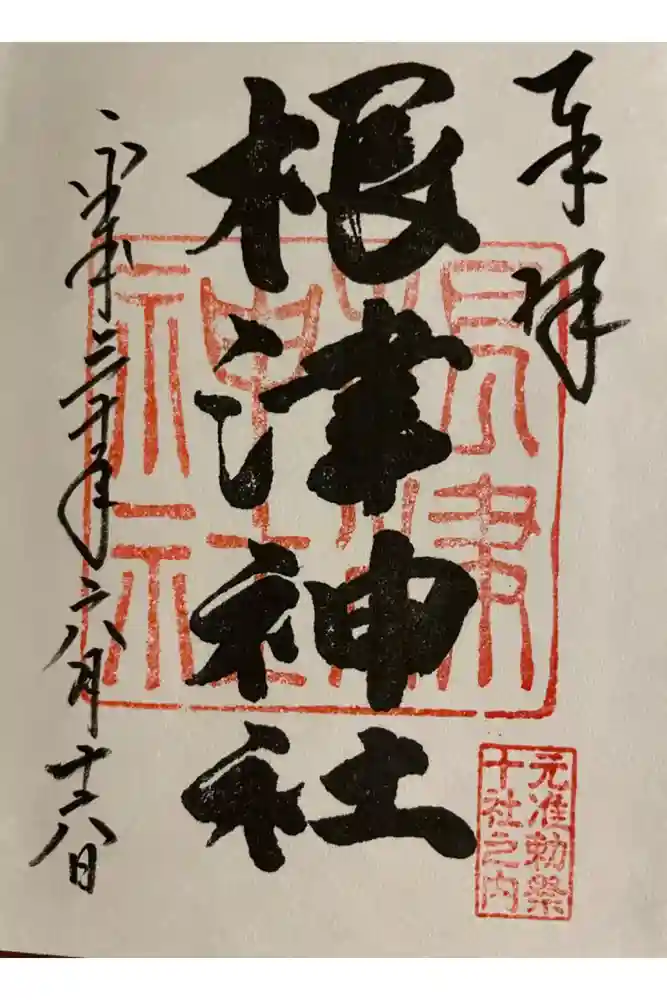 奉拝
根津神社
根津
神社
元准勅祭
十社之内
平成三十年六月十六日